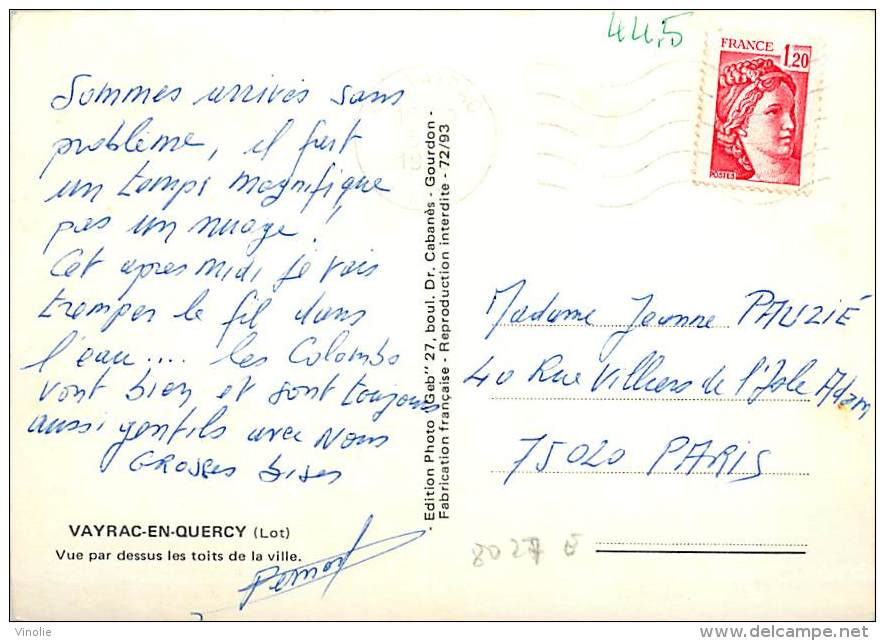 44.5
FRANCE
1,20
POSTES
Sommes arrivés sans
problème, il fait
un temps magnifique
pas un nuage !
Cet apres midi je vais
tremper le fil dans
l'eau.... les Colombo
vont bien et sont toujours
aussi gentils avec Nous
GROSSES bises
VAYRAC-EN-QUERCY (Lot)
Vue par dessus les toits de la ville.
Edition Photo "Geb" 27, boul. Dr. Cabanès - Gourdon -
Fabrication française - Reproduction interdite - 72/93
Madame Jeanne PAUZIÉ
40 Rue Villiers de l'Isle Adam
75020 PARIS
Vinolie
delcampe.net